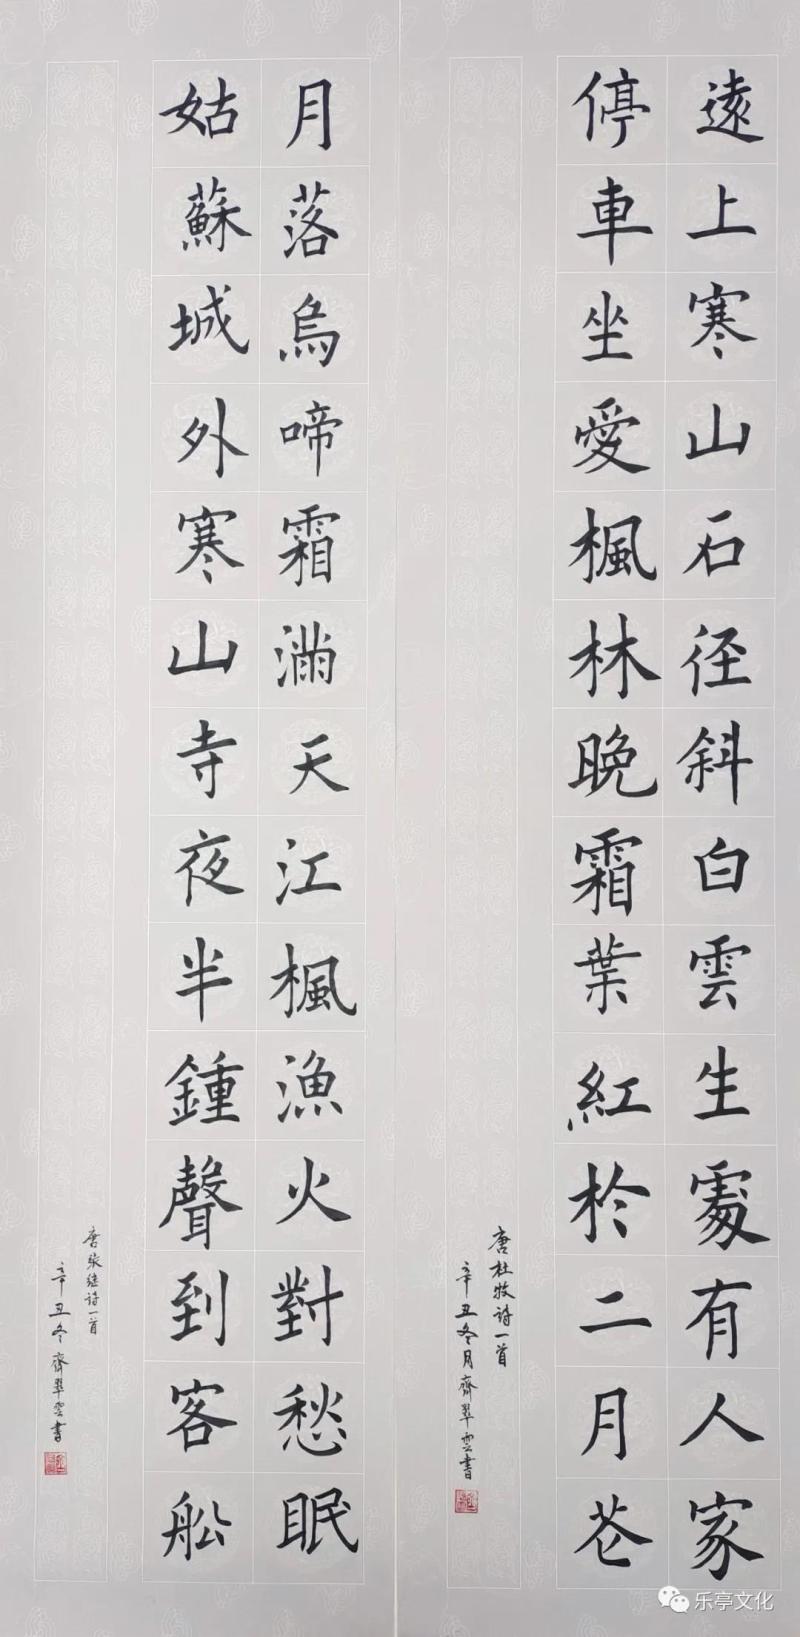 遠上寒山石径斜白雲生處有人家
停車坐愛楓林晚霜葉紅於二月花
唐杜牧詩一首
辛丑冬月齊翠雲書
月落烏啼霜滿天江楓漁火對愁眠
姑蘇城外寒山寺夜半鍾聲到客船
唐張继诗一首
辛丑冬齊翠雲書
乐亭文化